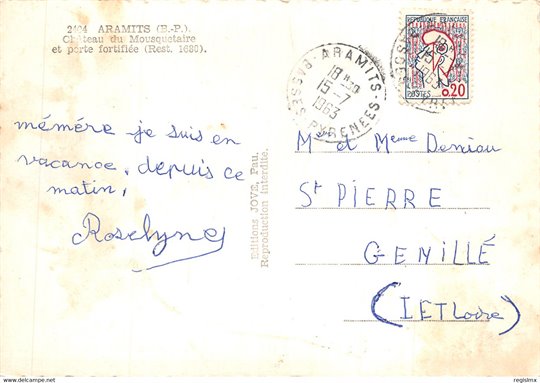 2404 ARAMITS (B.-P.).
Château du Mousquetaire
et porte fortifiée (Rest. 1680).
ARAMITS
18H
15-7
1963
BASSES-PYRENEES
REPUBLIQUE FRANÇAISE
POSTES 0,20
mémére je suis en
vacance, depuis ce
matin,
Roselyne
Editions JOVE, Pau.
Reproduction interdite.
Mr et Meme Deniau
St PIERRE
GENILLÉ
(I ET Loire)
delcampe.net